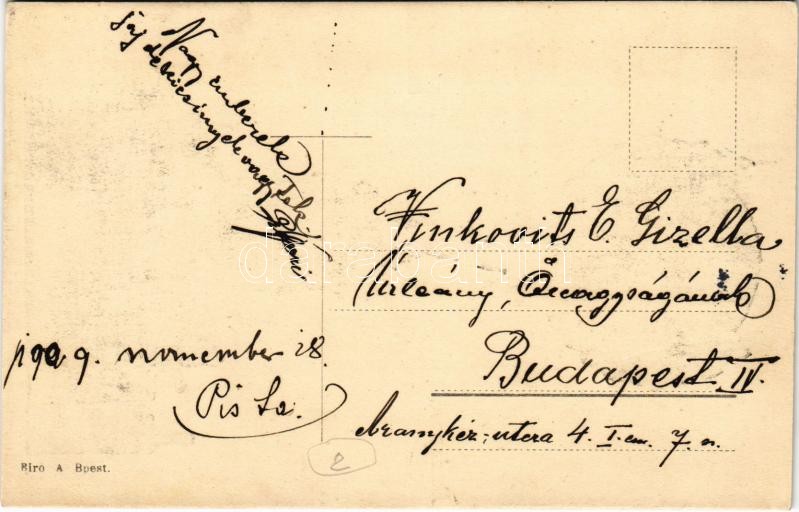 Nagy emberek
jaj de kicsinyek vagytok!
Vinkovits E. Gizella
Úrleány, Őnagyságának
Budapest IV.
Aranykéz-utcza 4. I. em. 7. a.
1909. november 28.
Pista.
2
Biró A Bpest.
darabanth